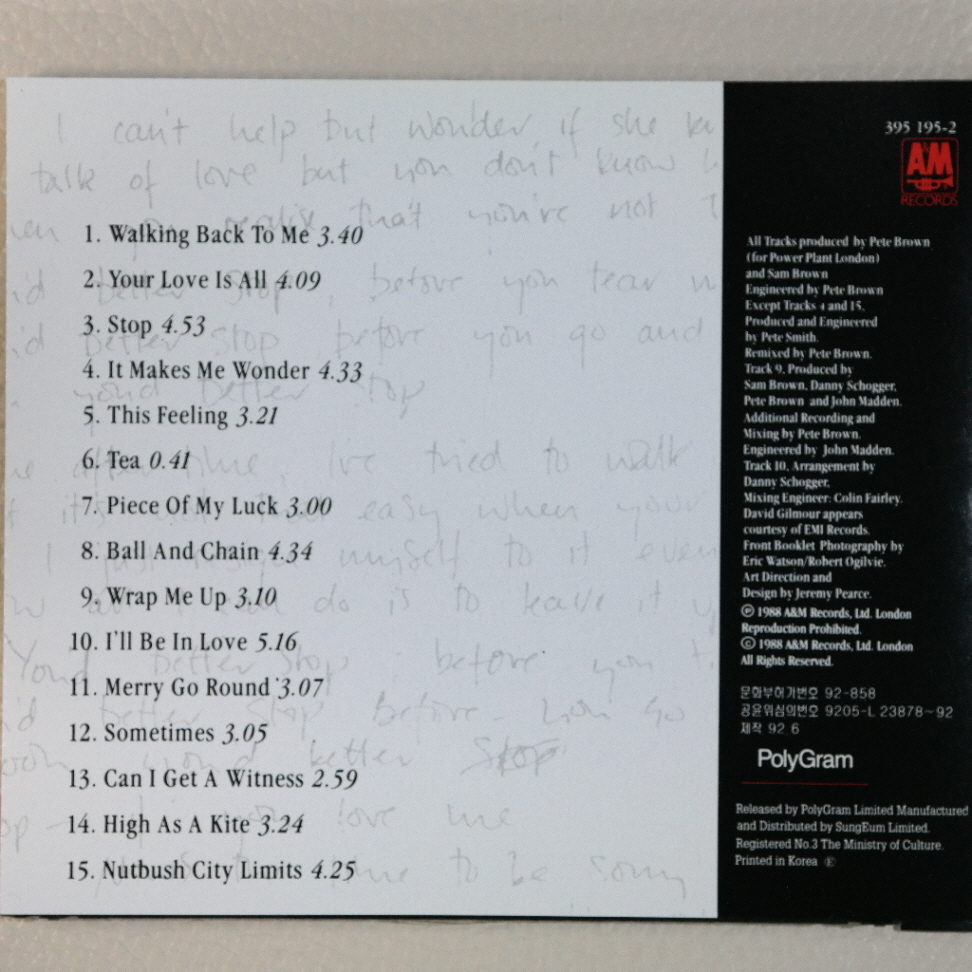 I can't help but wonder if she
talk of love but you don't know
that you're not
better stop, before you tear
better stop before you go and
better stop
I've tried to walk
easy when your
I myself to it even
do is to leave it
better stop before you
better stop before
better stop
love me
to be
1. Walking Back To Me 3.40
2. Your Love Is All 4.09
3. Stop 4.53
4. It Makes Me Wonder 4.33
5. This Feeling 3.21
6. Tea 0.41
7. Piece Of My Luck 3.00
8. Ball And Chain 4.34
9. Wrap Me Up 3.10
10. I'll Be In Love 5.16
11. Merry Go Round 3.07
12. Sometimes 3.05
13. Can I Get A Witness 2.59
14. High As A Kite 3.24
15. Nutbush City Limits 4.25
395 195-2
A&M
RECORDS
All Tracks produced by Pete Brown
(for Power Plant London)
and Sam Brown
Engineered by Pete Brown
Except Tracks 4 and 15,
Produced and Engineered
by Pete Smith.
Remixed by Pete Brown.
Track 9, Produced by
Sam Brown, Danny Schogger,
Pete Brown and John Madden.
Additional Recording and
Mixing by Pete Brown.
Engineered by John Madden.
Track 10, Arrangement by
Danny Schogger,
Mixing Engineer: Colin Fairley.
David Gilmour appears
courtesy of EMI Records.
Front Booklet Photography by
Eric Watson/Robert Ogilvie.
Art Direction and
Design by Jeremy Pearce.
℗ 1988 A&M Records, Ltd. London
Reproduction Prohibited.
© 1988 A&M Records, Ltd. London
All Rights Reserved.
문화부허가번호 92-858
공윤위심의번호 9205-L 23878~92
제작 92.6
PolyGram
Released by PolyGram Limited Manufactured
and Distributed by SungEum Limited.
Registered No.3 The Ministry of Culture.
Printed in Korea Ⓔ